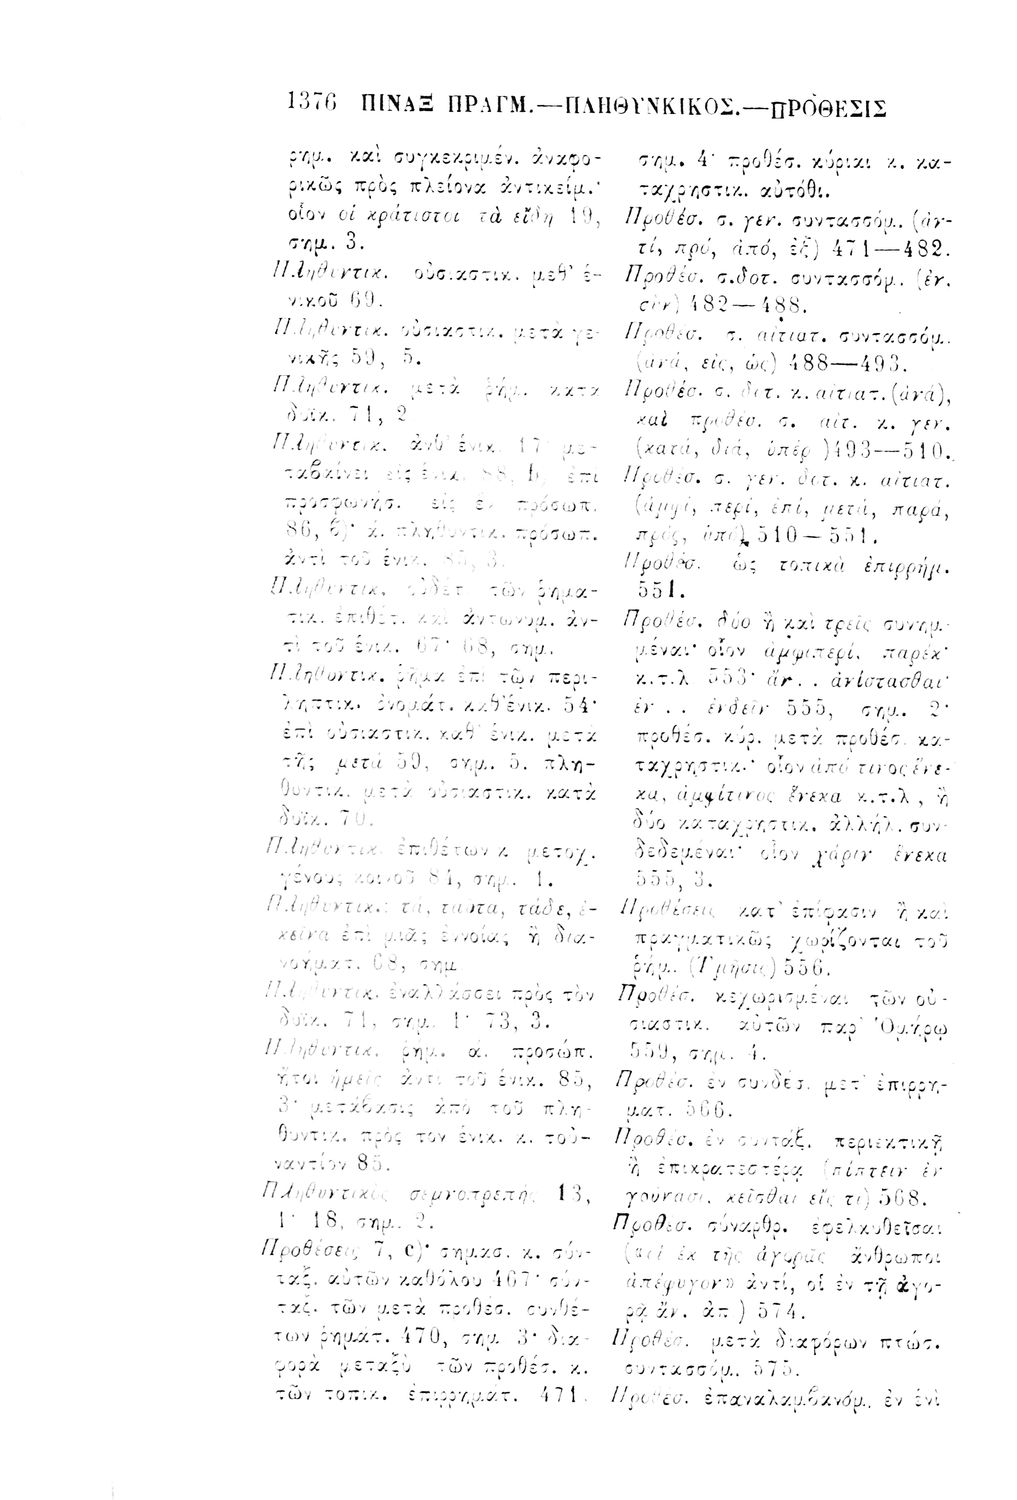 1376 ΠΙΝΑΞ ΠΡΑΓΜ.—ΠΛΗΘΥΝΚΙΚΟΣ.—ΠΡΟΘΕΣΙΣ
ρημ. καὶ συγκεκριμέν. ἀναφο-
ρικῶς πρὸς πλείονα ἀντικείμ.·
οἷον οἱ κράτιστοι τὰ εἴδη 19,
σημ. 3.
Πληθυντικ. οὐσιαστικ. μεθ' ἑ-
νικοῦ 69.
Πληθυντικ. οὐσιαστικ. μετὰ γε-
νικῆς 59, 5.
Πληθυντικ. μετὰ ῥήμ. κατὰ
δυϊκ. 71, 2
Πληθυντικ. ἀνθ' ἑνικ. 17 με-
ταβαίνει εἰς ἑνικ. 88, b, ἐπὶ
προσφωνήσ. εἰς ἓν πρόσωπ.
86, 6)· ἀ. πληθυντικ. πρόσωπ.
ἀντὶ τοῦ ἑνικ. 85, 3.
Πληθυντικ. οὐδέτ τῶν ῥημα-
τικ. ἐπιθέτ. καὶ ἀντωνυμ. ἀν-
τὶ τοῦ ἑνικ. 67· 68, σημ.
Πληθυντικ. ῥῆμα ἐπὶ τῶν περι-
ληπτικ. ὀνομάτ. καθ'ἑνικ. 54·
ἐπὶ οὐσιαστικ. καθ' ἑνικ. μετὰ
τῆς μετὰ 59, σημ. 5. πλη-
θυντικ. μετὰ οὐσιαστικ. κατὰ
δυϊκ. 70.
Πληθυντικ. ἐπιθέτων κ. μετοχ.
γένους κοινοῦ 84, σημ. 1.
Πληθυντικ.: τὰ, ταῦτα, τάδε, ἐ-
κεῖνα ἐπὶ μιᾶς ἐννοίας ἢ δια-
νοήματ. 68, σημ
Πληθυντικ. ἐναλλάσσει πρὸς τὸν
δυϊκ. 71, σημ. 1· 73, 3.
Πληθυντικ. ῥημ. ά. προσώπ.
ἤτοι ἡμεῖς ἀντὶ τοῦ ἑνικ. 85,
3· μετάβασις ἀπὸ τοῦ πλη-
θυντικ. πρὸς τὸν ἑνικ. κ. τοὐ-
ναντίον 85.
Πληθυντικὸς σεμνοπρεπής 13,
1· 18, σημ. 2.
Προθέσεις 7, c)· σημασ. κ. σύν-
ταξ. αὐτῶν καθόλου 467· σύν-
ταξ. τῶν μετὰ προθέσ. συνθέ-
των ῥημάτ. 470, σημ. 3· δια-
φορὰ μεταξὺ τῶν προθέσ. κ.
τῶν τοπικ. ἐπιρρηματ. 471.
σημ. 4· προθέσ. κύριαι κ. κα-
ταχρηστικ. αὐτόθι.
Προθέσ. σ. γεν. συντασσόμ. (ἀν-
τί, πρό, ἀπό, ἐξ) 471—482.
Προθέσ. σ.δοτ. συντασσόμ. (ἐν.
σὺν) 482—488.
Προθέσ. σ. αἰτιατ. συντασσόμ.
(ἀνά, εἰς, ὡς) 488—493.
Προθέσ. σ. δοτ. κ. αἰτιατ. (ἀνά),
καὶ προθέσ. σ. αἰτ. κ. γεν.
(κατά, διά, ὑπέρ) 493—510.
Προθέσ. σ. γεν. δοτ. κ. αἰτιατ.
(ἀμφί, περί, ἐπί, μετά, παρά,
πρός, ὑπό) 510—551.
Προθέσ. ὡς τοπικὰ ἐπιρρήμ.
551.
Προθέσ. δύο ἢ καὶ τρεῖς συνημ-
μέναι· οἷον ἀμφιπερί, παρέκ·
κ.τ.λ 553· ἄν.. ἀνίστασθαι·
ἐν .. ἐνδεῖν 555, σημ. 2·
προθέσ. κύρ. μετὰ προθέσ. κα-
ταχρηστικ.· οἷον ἀπό τινος ἕνε-
κα, ἀμφίτινος ἕνεκα κ.τ.λ, ἢ
δύο καταχρηστικ. ἀλλήλ. συν-
δεδεμέναι· οἷον χάριν ἕνεκα
555, 3.
Προθέσεις κατ' ἐπίφασιν ἢ καὶ
πραγματικῶς χωρίζονται τοῦ
ῥήμ. (Τμῆσις) 556.
Προθέσ. κεχωρισμέναι τῶν οὐ-
σιαστικ. αὐτῶν παρ' Ὁμήρῳ
559, σημ. 4.
Προθέσ. ἐν συνδέσ. μετ' ἐπιρρη-
ματ. 566.
Προθέσ. ἐν συντάξ. περιεκτικῇ
ἢ ἐπικρατεστέρᾳ (πίπτειν ἐν
γούνασι, κεῖσθαι εἴς τι) 568.
Προθέσ. σύναρθρ. ἐφελκυθεῖσαι
(«οἱ ἐκ τῆς ἀγορᾶς ἄνθρωποι
ἀπέφυγον» ἀντί, οἱ ἐν τῇ ἀγο-
ρᾷ ἄν. ἀπ) 574.
Προθέσ. μετὰ διαφόρων πτώσ.
συντασσόμ. 575.
Προθέσ. ἐπαναλαμβανόμ. ἐν ἑνὶ